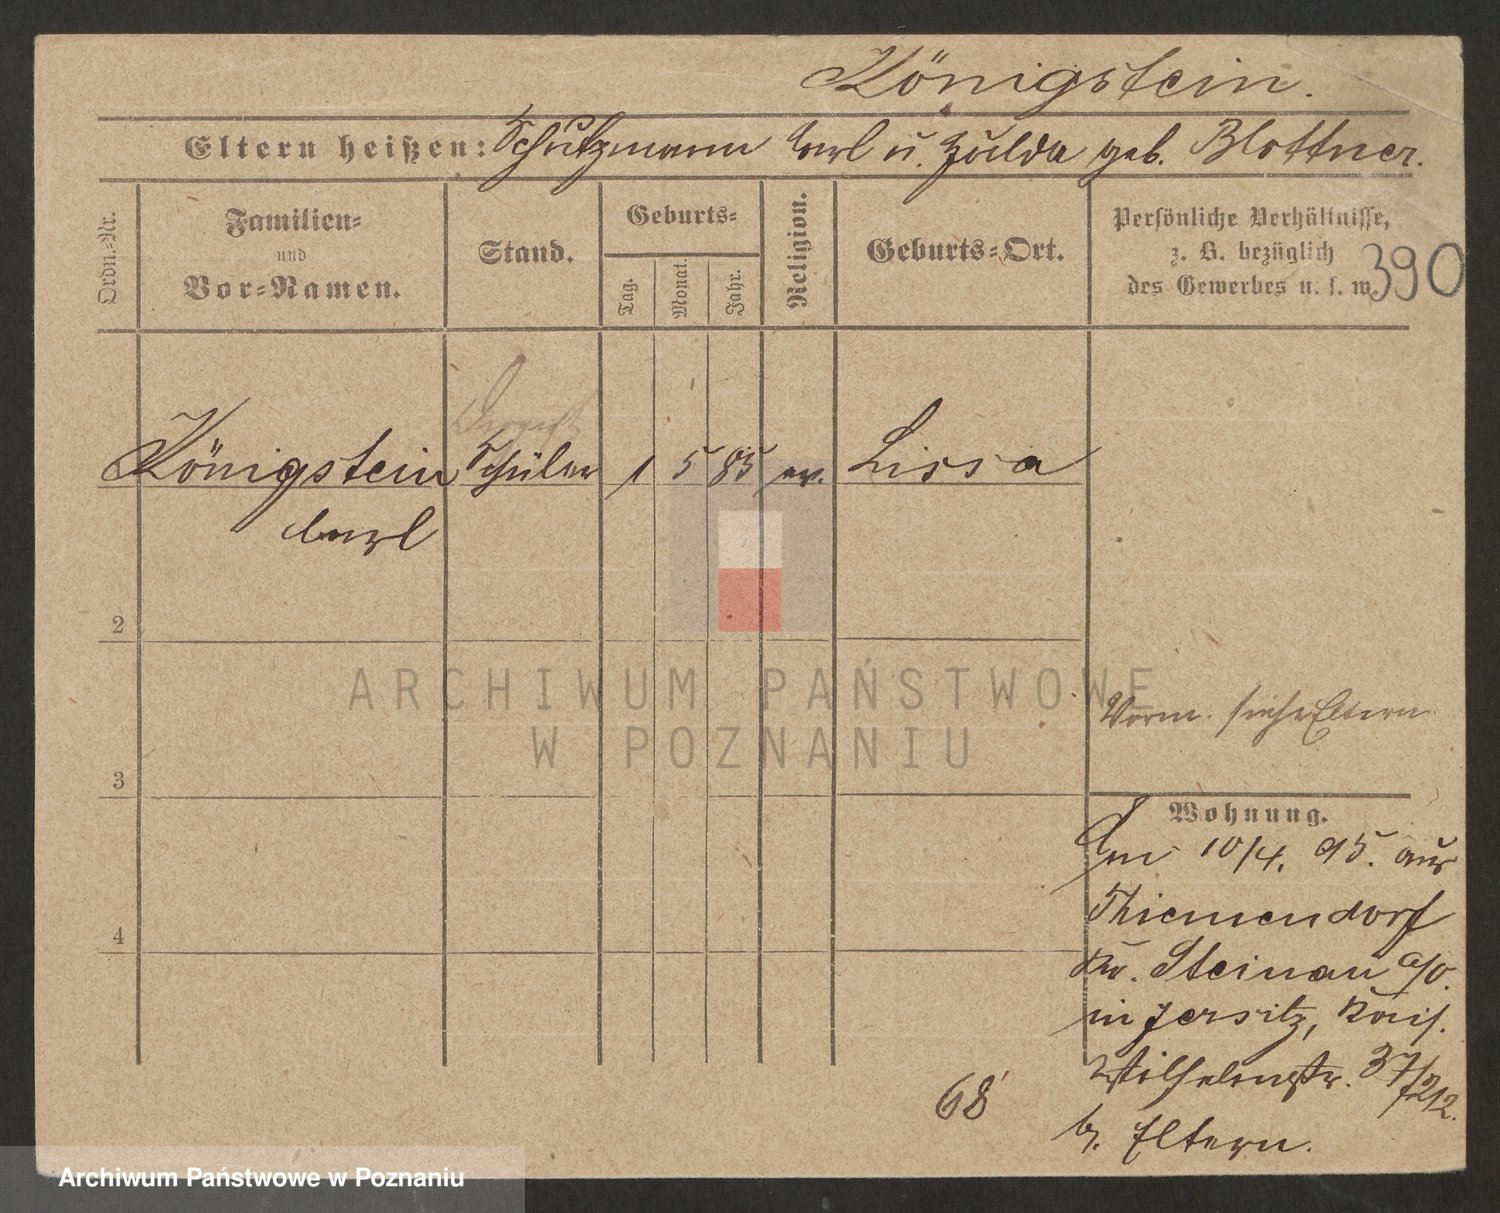 Königstein.
Eltern heißen: Schutzmann Carl u. Hulda geb. Blottner.
Ordn.-Nr.
Familien- und Vor-Namen.
Stand.
Geburts-
Tag. Monat. Jahr.
Religion.
Geburts-Ort.
Persönliche Verhältnisse,
z. B. bezüglich
des Gewerbes u. s. w.
390
Königstein Schüler 1 5 85 ev. Lissa
Carl
2
3
4
ARCHIWUM PAŃSTWOWE
W POZNANIU
Vorm. siehe Eltern
Wohnung.
Am 10/4. 95. aus
Thiemendorf
Kr. Steinau a/O.
in Jersitz, Kais.
Wilhelmstr. 37/212.
b. Eltern.
68
Archiwum Państwowe w Poznaniu